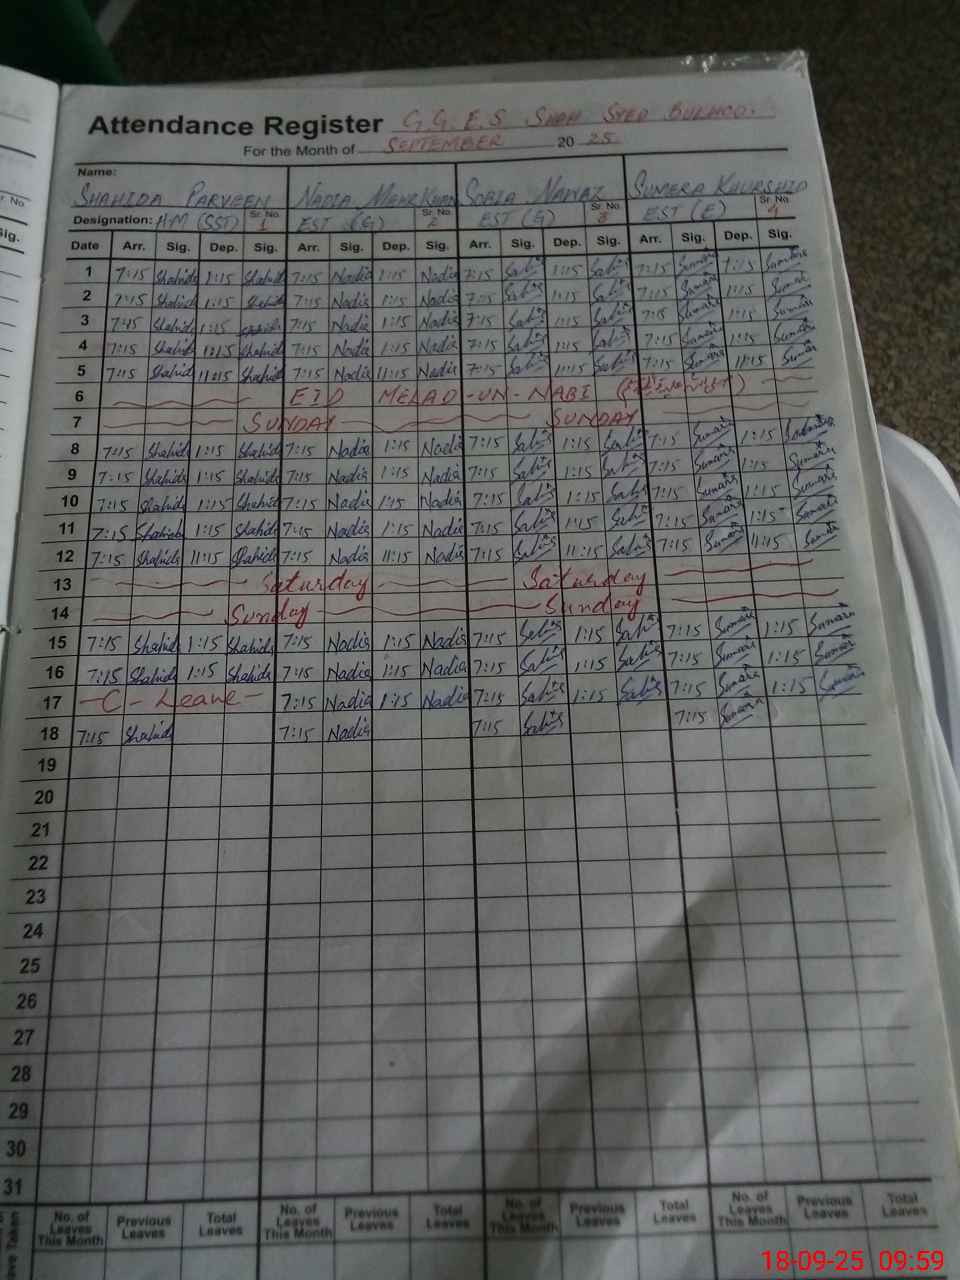 Attendance Register G.G.E.S SHAH SYED
For the Month of SEPTEMBER 20 25
Name:
SHAHIDA PARVEEN NADIA MEHR KHAN SOBIA NAWAZ SUMERA KHURSHID
Designation: H.M (SST) Sr. No. 1 EST (G) Sr. No. 2 EST (G) Sr. No. 3 EST (E) Sr. No. 4
Date Arr. Sig. Dep. Sig. Arr. Sig. Dep. Sig. Arr. Sig. Dep. Sig. Arr. Sig. Dep. Sig.
1 7:15 Shahida 1:15 Shahida 7:15 Nadia 1:15 Nadia 7:15 1:15 7:15 1:15
2 7:15 Shahida 1:15 Shahida 7:15 Nadia 1:15 Nadia 7:15 1:15 7:15 1:15
3 7:15 Shahida 1:15 Shahida 7:15 Nadia 1:15 Nadia 7:15 1:15 7:15 1:15
4 7:15 Shahida 1:15 Shahida 7:15 Nadia 1:15 Nadia 7:15 1:15 7:15 1:15
5 7:15 Shahid 11:15 Shahida 7:15 Nadia 11:15 Nadia 7:15 11:15 7:15 11:15
6 EID MELAD-UN-NABI
7 SUNDAY SUNDAY
8 7:15 Shahida 1:15 Shahida 7:15 Nadia 1:15 Nadia 7:15 1:15 7:15 1:15
9 7:15 Shahida 1:15 Shahida 7:15 Nadia 1:15 Nadia 7:15 1:15 7:15 1:15
10 7:15 Shahida 1:15 Shahida 7:15 Nadia 1:15 Nadia 7:15 1:15 7:15 1:15
11 7:15 Shahida 1:15 Shahida 7:15 Nadia 1:15 Nadia 7:15 1:15 7:15 1:15
12 7:15 Shahida 11:15 Shahida 7:15 Nadia 11:15 Nadia 7:15 11:15 7:15 11:15
13 Saturday Saturday
14 Sunday Sunday
15 7:15 Shahida 1:15 Shahida 7:15 Nadia 1:15 Nadia 7:15 1:15 7:15 1:15
16 7:15 Shahida 1:15 Shahida 7:15 Nadia 1:15 Nadia 7:15 1:15 7:15 1:15
17 C - Leave 7:15 Nadia 1:15 Nadia 7:15 1:15 7:15 1:15
18 7:15 Shahid 7:15 Nadia 7:15 7:15
19
20
21
22
23
24
25
26
27
28
29
30
31
No. of Leaves This Month Previous Leaves Total Leaves No. of Leaves This Month Previous Leaves Total Leaves No. of Leaves This Month Previous Leaves Total Leaves No. of Leaves This Month Previous Leaves Total Leaves
18-09-25 09:59